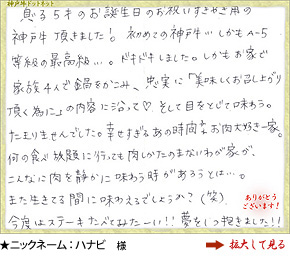 神戸牛ドットネット
る5才のお誕生日のお祝いすきやき用の
神戸牛 頂きました! 初めての神戸牛…しかもA-5
等級の最高級…。ドキドキしました。しかもお家で
家族4人で鍋をかこみ、忠実に「美味しくお召し上がり
頂く為に」の内容に沿って♡そして目をとじて味わう。
たまりませんでした。幸せすぎるあの時間を お肉大好き一家。
何の食べ放題に行っても肉しかたのまないわが家が、
こんなに肉を静かに味わう時があろうとは…。
また生きてる間に味わえるでしょうか?(笑)
今度はステーキたべてみたーい!!夢を1つ抱きました!!
ありがとう
ございます!
★ニックネーム:ハナビ 様
拡大して見る